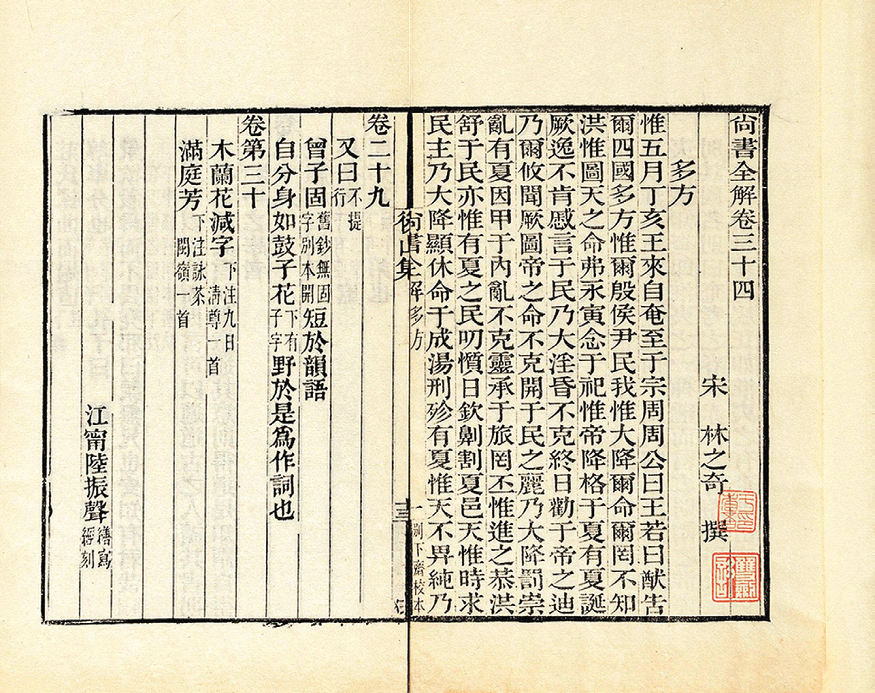 尚書全解卷三十四
宋 林之奇 撰
多方
惟五月丁亥王來自奄至于宗周周公曰王若曰猷告
爾四國多方惟爾殷侯尹民我惟大降爾命爾罔不知
洪惟圖天之命弗永寅念于祀惟帝降格于夏有夏誕
厥逸不肯慼言于民乃大淫昏不克終日勸于帝之迪
乃爾攸聞厥圖帝之命不克開于民之麗乃大降罰崇
亂有夏因甲于內亂不克靈承于旅罔丕惟進之恭洪
舒于民亦惟有夏之民叨懫日欽劓割夏邑天惟時求
民主乃大降顯休命于成湯刑殄有夏惟天不畀純乃
解多方
卷二十九
又曰不提行
曾子固舊鈔無固字別本開短於韻語
自分身如鼓子花下有子字野於是爲作詞也
卷第三十
木蘭花減字下注九日清尊一首
滿庭芳下注詠茶一首
江甯陸振聲繕寫經刻